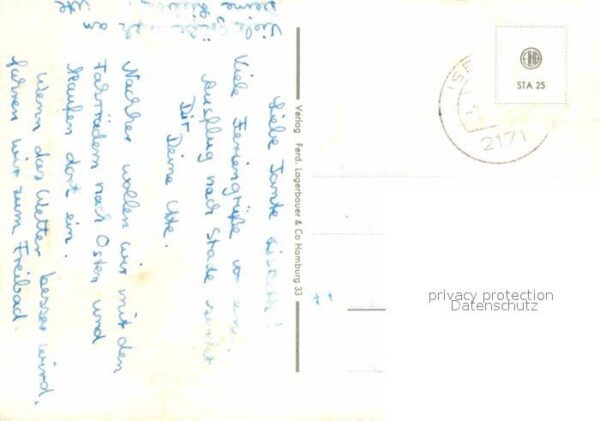 Liebe Tante
Viele Feriengrüße von
Ausflug nach Stade
Dir Deine Ute.
Nachher wollen wir mit den
Fahrrädern nach Osten und
kaufen dort ein.
Wenn das Wetter besser wird,
fahren wir zum Freibad.
Verlag Ferd. Lagerbauer & Co Hamburg 33
STA 25
2171
privacy protection
Datenschutz